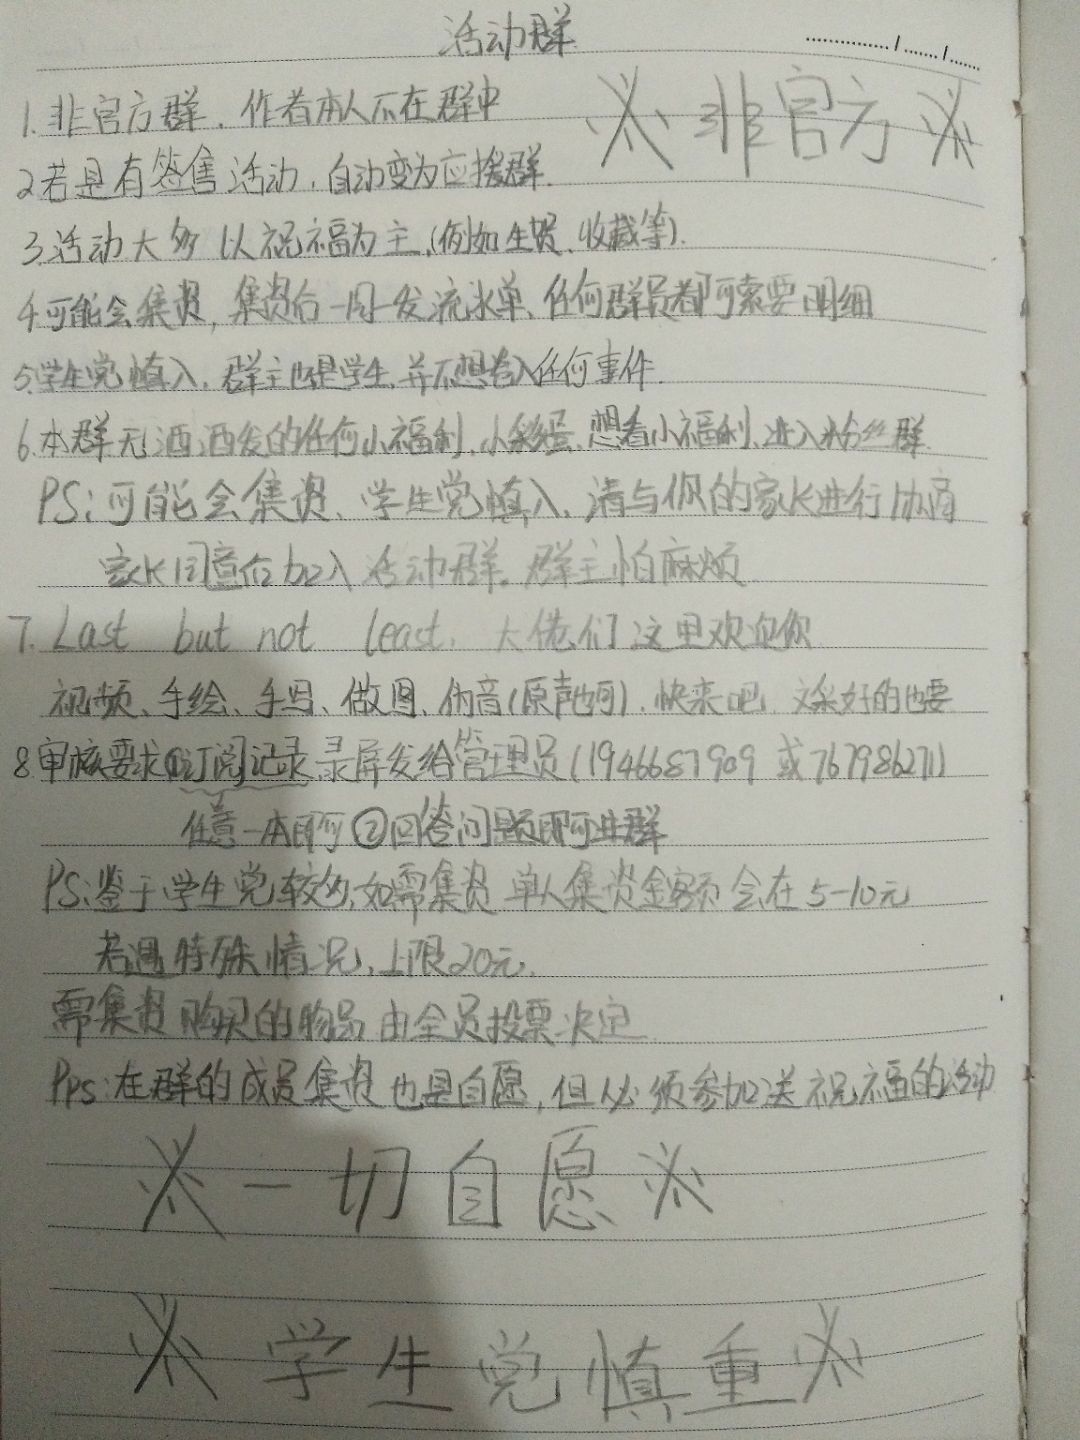 活动群
※ 非官方 ※
1.非官方群，作者本人不在群中
2.若是有签售活动，自动变为应援群.
3.活动大多以祝福为主(例如生贺、收藏等).
4.可能会集资，集资后一周一发流水单、任何群员都可索要明细
5.学生党慎入，群主也是学生，并不想卷入任何事件.
6.本群无酒酒发的任何小福利、小彩蛋、想看小福利、进入粉丝群.
PS:可能会集资、学生党慎入、请与你的家长进行协商
家长同意后加入活动群。群主怕麻烦
7. Last but not least. 大佬们这里欢迎你
视频、手绘、手写、做图、伪音(原声也可)、快来吧 文采好的也要
8.审核要求①订阅记录录屏发给管理员(1946687909 或 767986271)
任意一本即可 ②回答问题即可进群
PS:鉴于学生党较多,如需集资 单人集资金额会在5-10元
若遇特殊情况、上限20元.
需集资购买的物品由全员投票决定
PPS:在群的成员集资也是自愿，但必须参加送祝福的活动
※ 一切自愿 ※
※ 学生党慎重 ※